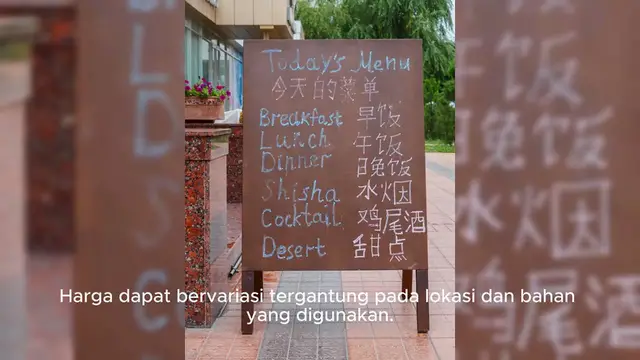 Today's Menu
今天的菜单
Breakfast 早饭
Lunch 午饭
Dinner 晚饭
Shisha 水烟
Cocktail 鸡尾酒
Desert 甜点
Harga dapat bervariasi tergantung pada lokasi dan bahan
yang digunakan.